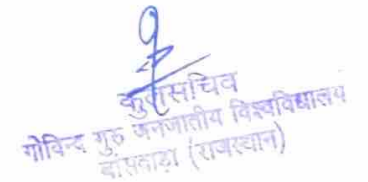 कुलसचिव
गोविन्द गुरु जनजातीय विश्वविद्यालय
बांसवाड़ा (राजस्थान)